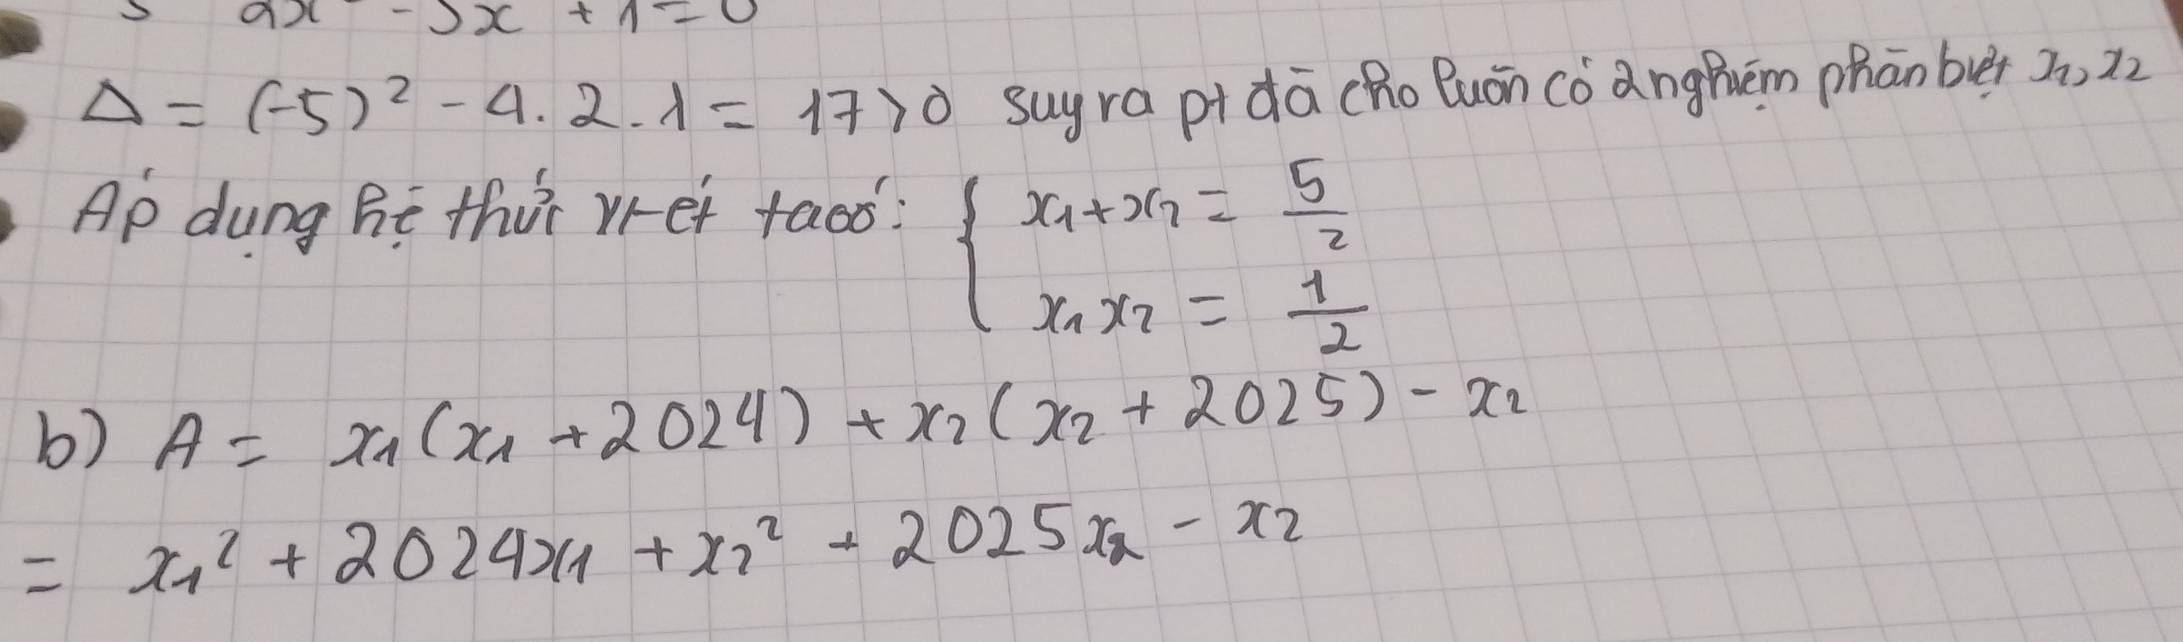 2x² - 5x + 1 = 0
Δ = (-5)² - 4.2.1 = 17 > 0 suy ra pt đã cho luôn có 2 nghiệm phân biệt x₁, x₂
Áp dụng hệ thức Vi-ét ta có: { x₁ + x₂ = 5/2
x₁x₂ = 1/2
b) A = x₁(x₁ + 2024) + x₂(x₂ + 2025) - x₂
= x₁² + 2024x₁ + x₂² + 2025x₂ - x₂